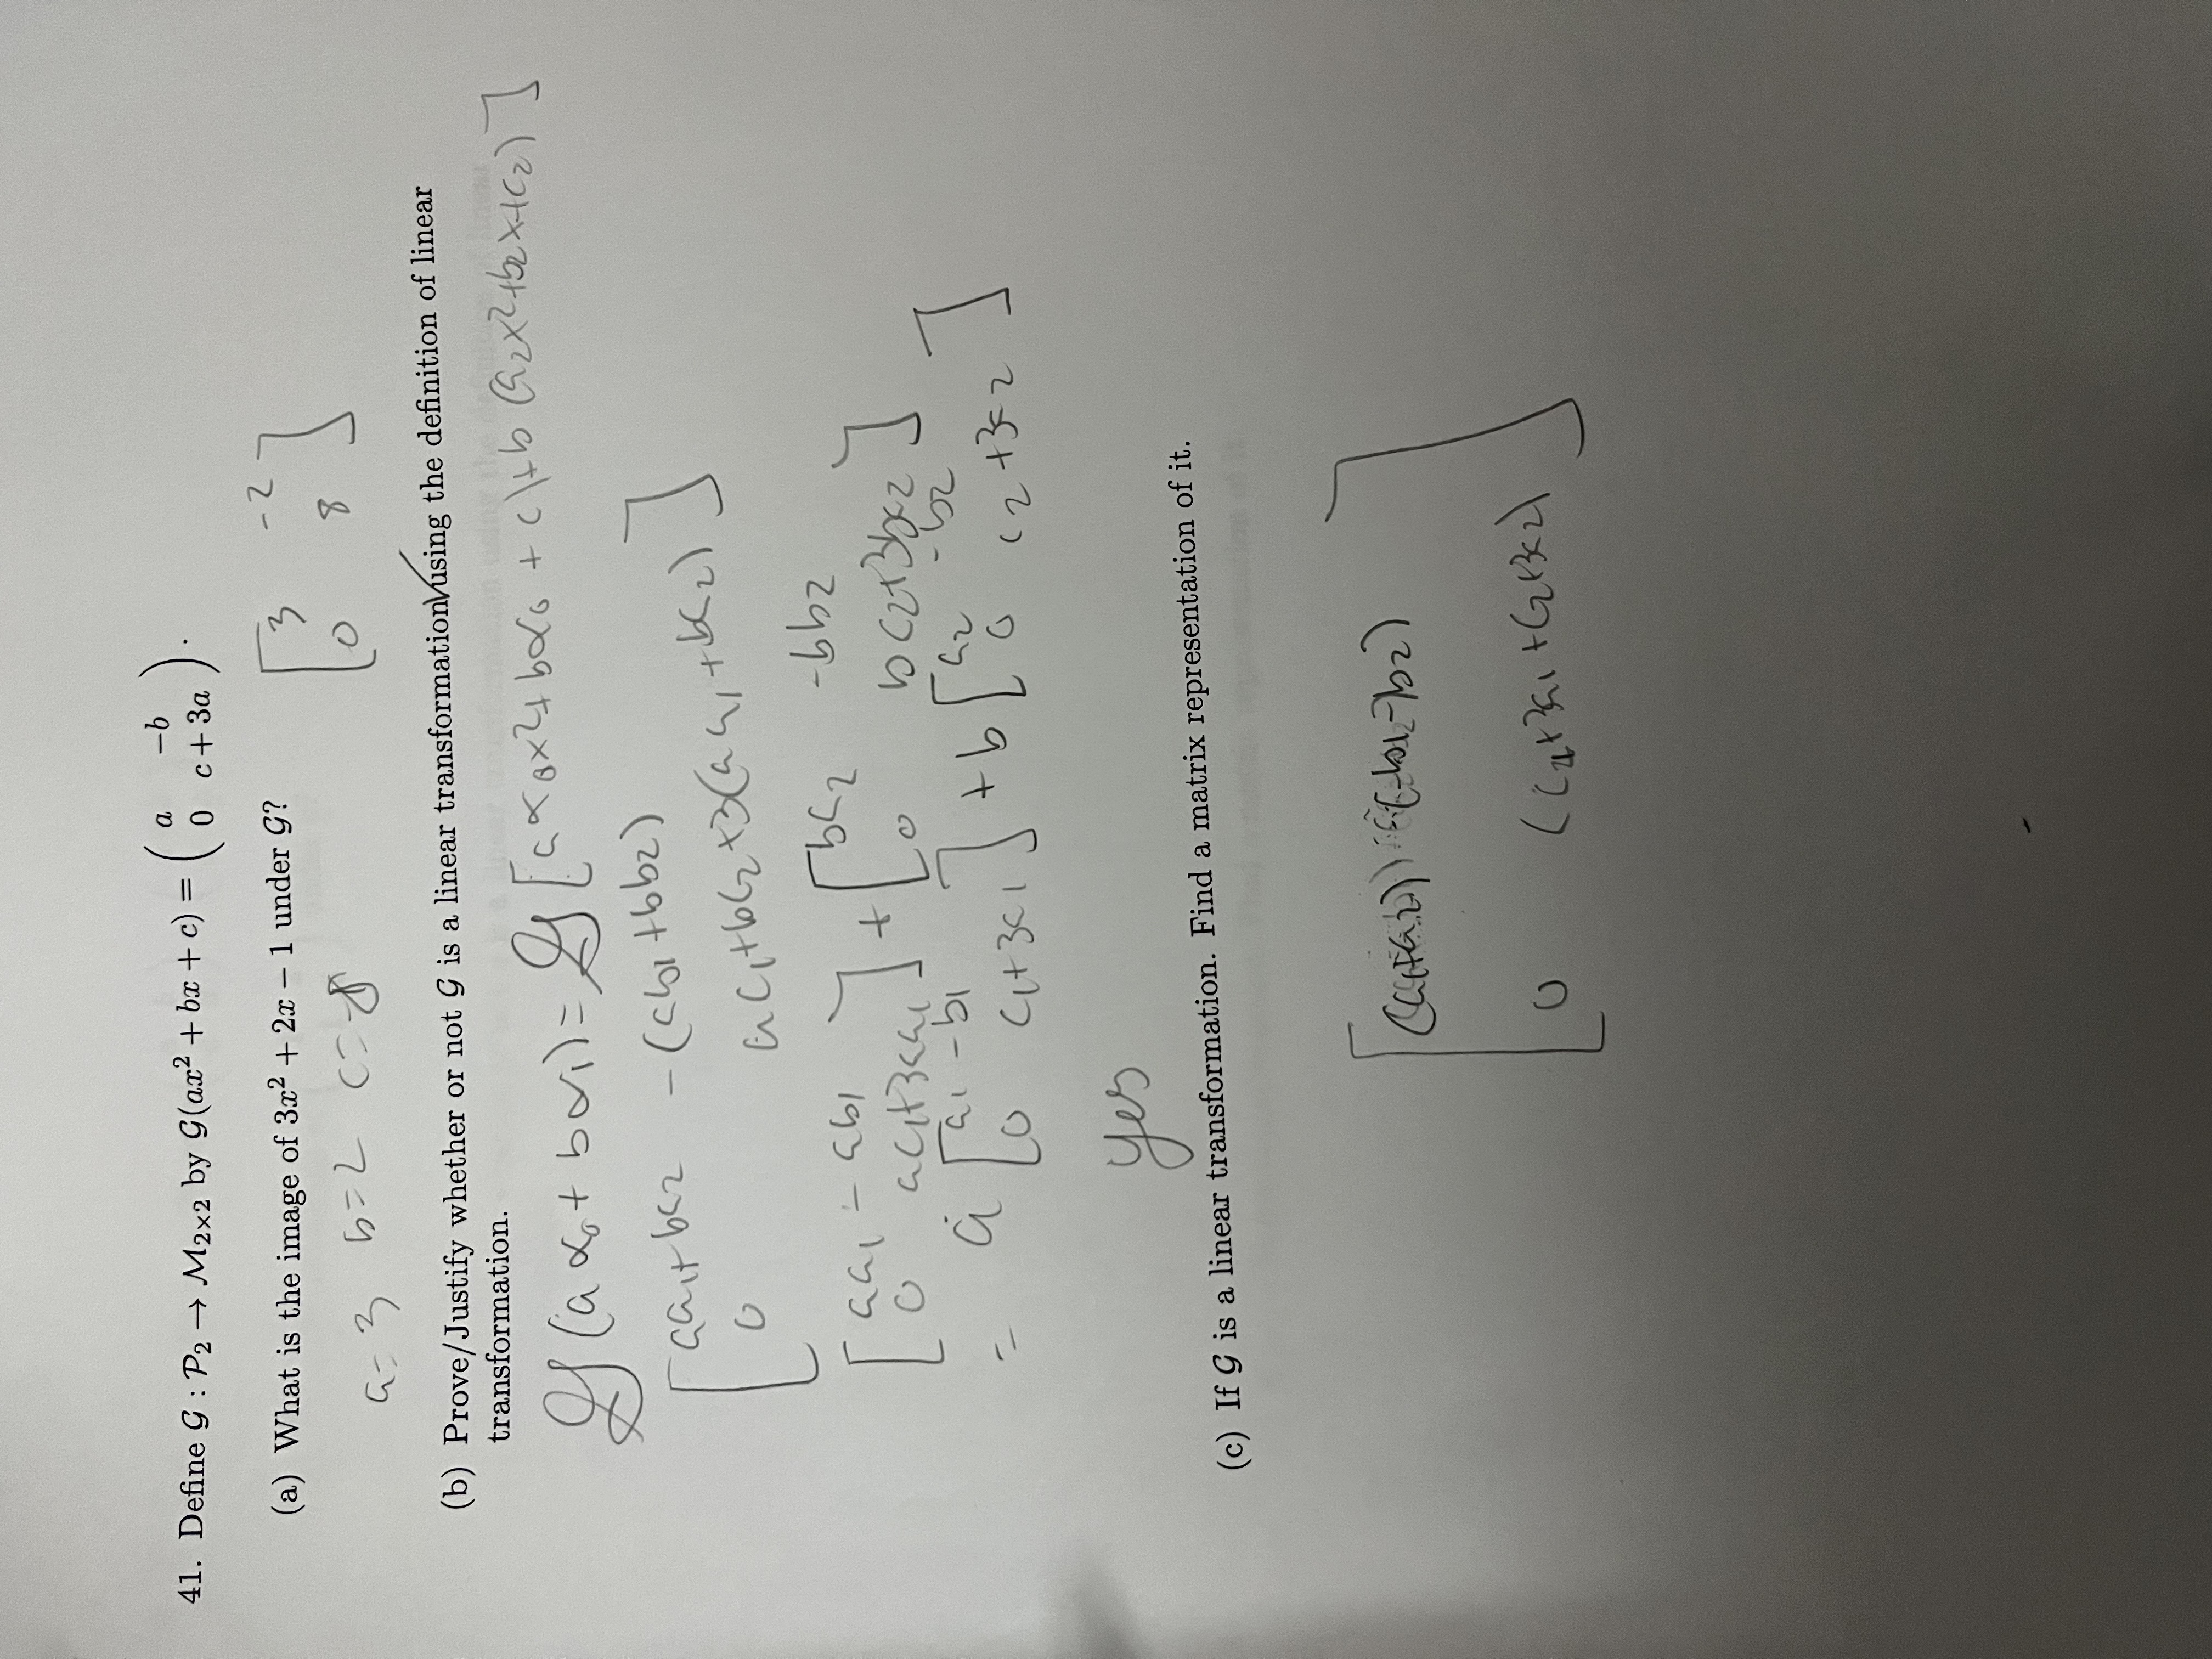 41. Define 𝒢 : 𝒫₂ → ℳ₂ₓ₂ by 𝒢(ax² + bx + c) = ( a −b ; 0 c + 3a ).
(a) What is the image of 3x² + 2x − 1 under 𝒢?
[ 3 -2 ; 0 8 ]
a=3 b=2
(b) Prove/Justify whether or not 𝒢 is a linear transformation using the definition of linear
transformation.
𝒢(aα₀ + bα₁) = 𝒢[aα₀x² + bα₀ + c) + b(a₂x²+b₂x+c₂)]
[ aa₁+ba₂ -(ab₁+bb₂) ; 0 ac₁+bc₂+3(aa₁+ba₂) ]
[ aa₁ -ab₁ ; 0 ac₁+3aa₁ ] + [ ba₂ -bb₂ ; 0 bc₂+3ba₂ ]
= a [ a₁ -b₁ ; 0 c₁+3a₁ ] + b [ a₂ -b₂ ; 0 c₂+3a₂ ]
yes
(c) If 𝒢 is a linear transformation. Find a matrix representation of it.
[ (a₁+a₂) (-b₁-b₂) ; 0 (c₁+3a₁+c₂+3a₂) ]